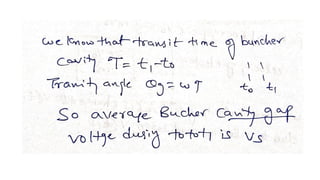 we know that transit time of buncher
cavity T = t₁-t₀
Tranity angle θg = ωT
t₀ t₁
So average Bucher cavity gap
voltge durig t₀ to t₁ is Vs